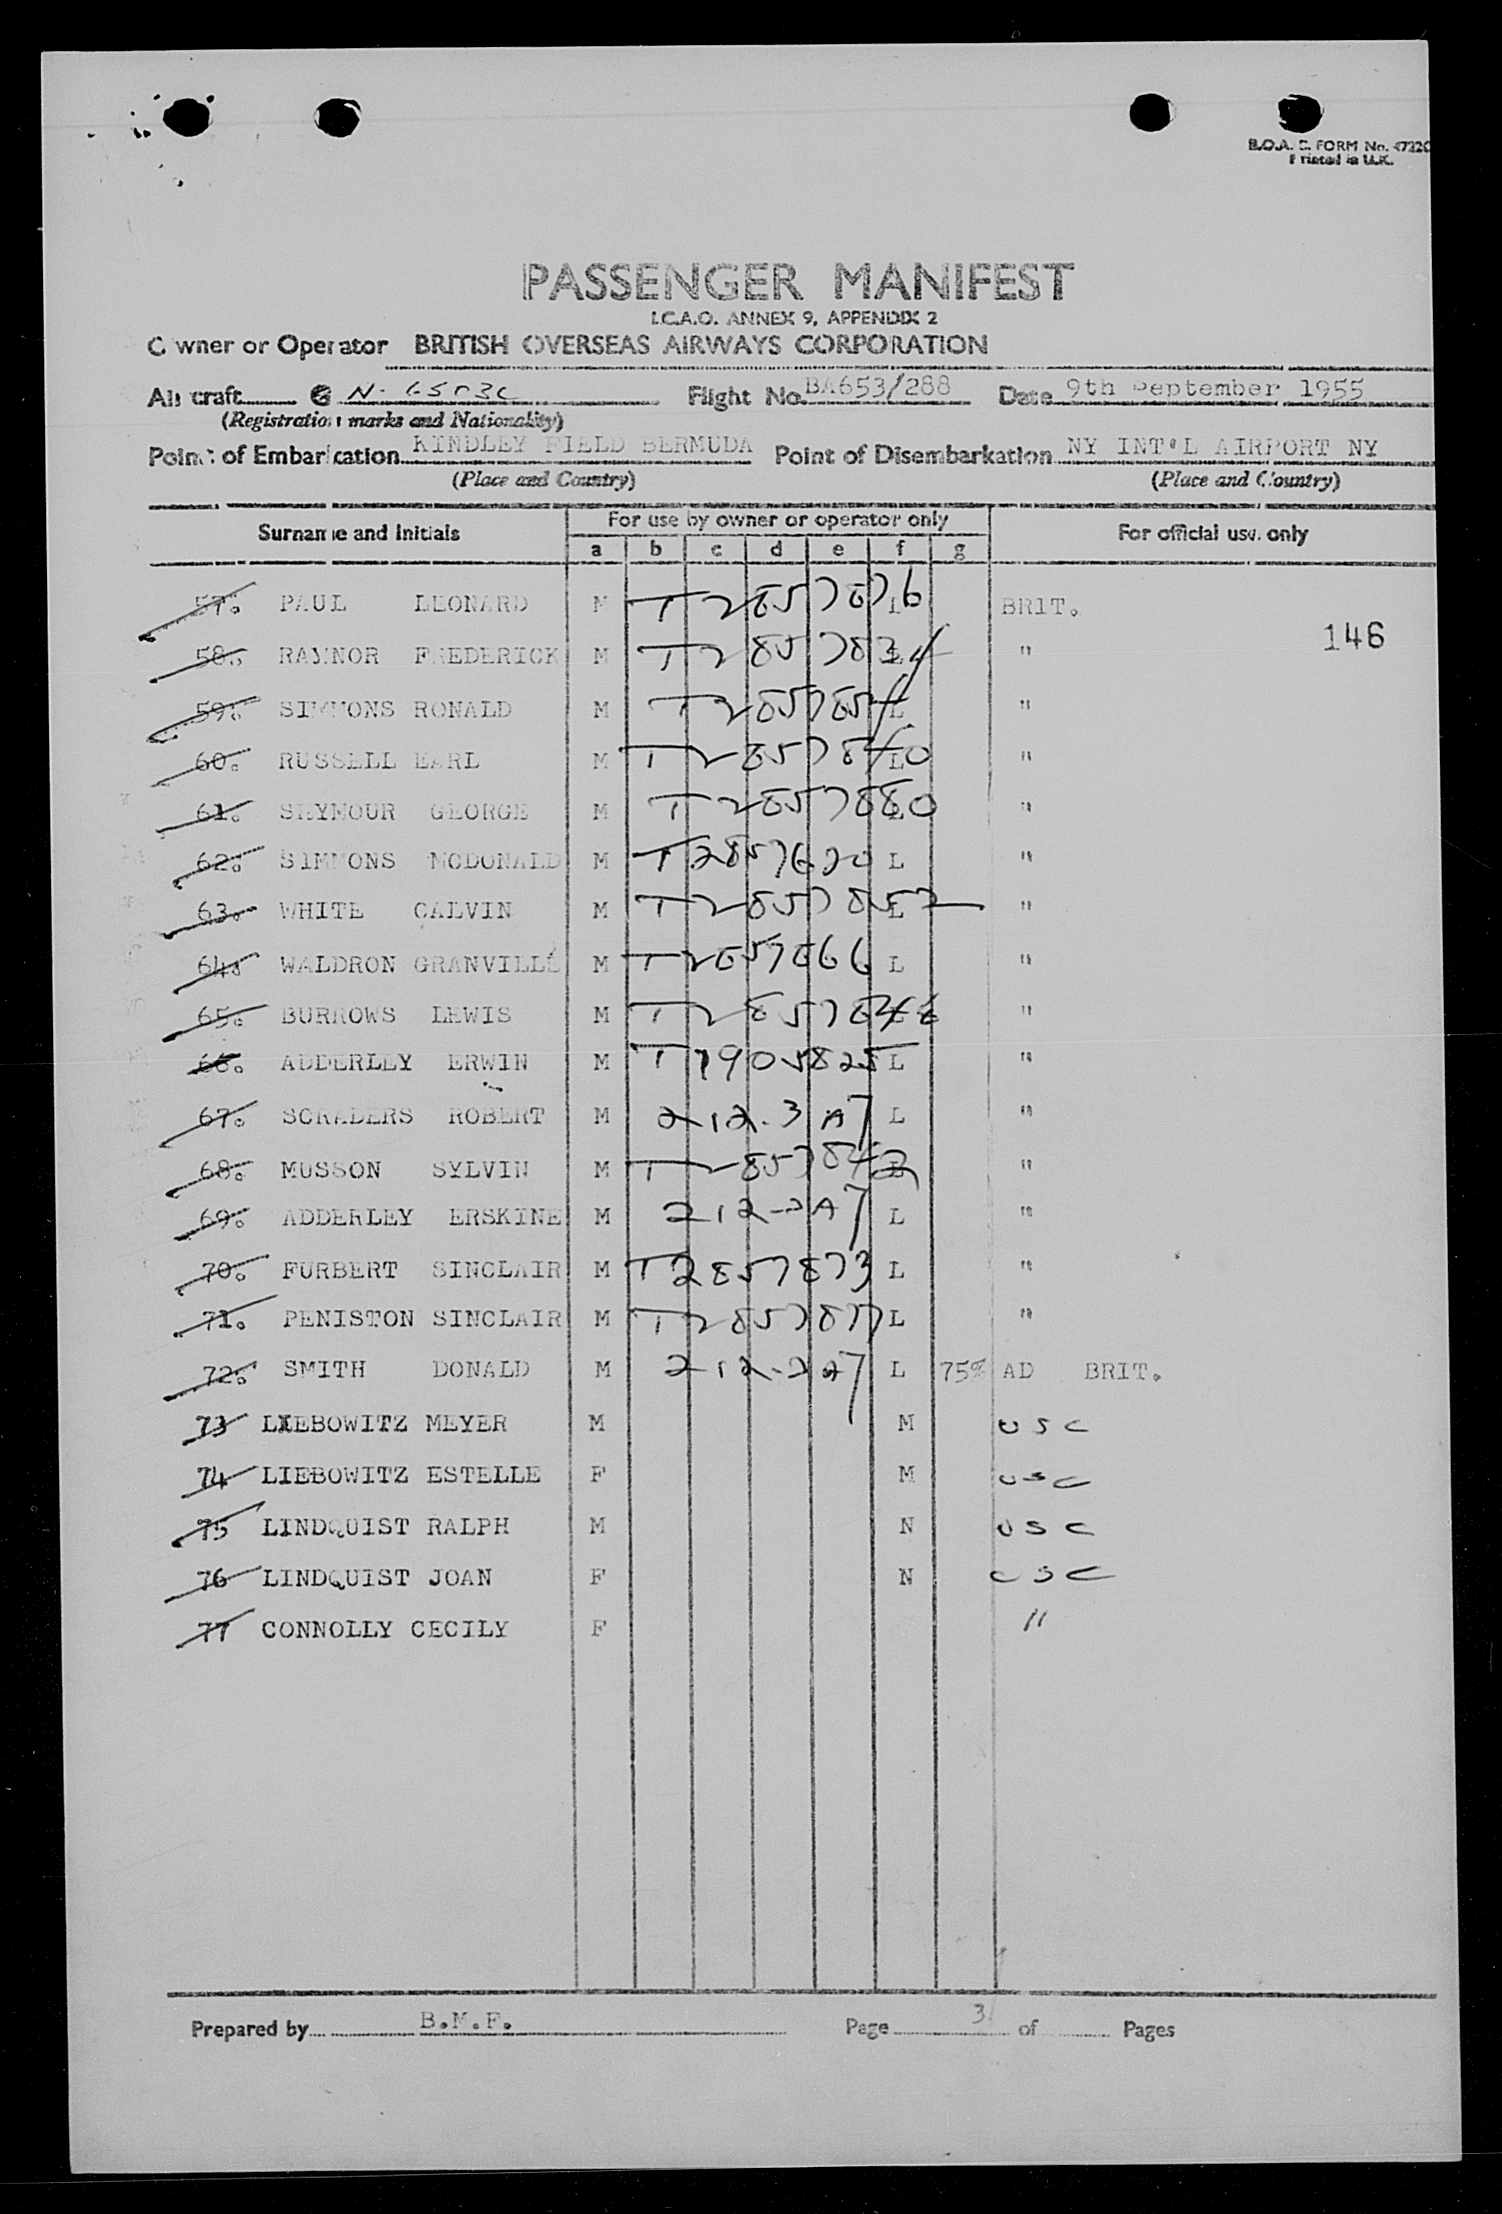 B.O.A.C. FORM No.
Printed in U.K.
PASSENGER MANIFEST
I.C.A.O. ANNEX 9, APPENDIX 2
Owner or Operator BRITISH OVERSEAS AIRWAYS CORPORATION
Aircraft Flight No. BA653/288 Date 9th September 1955
(Registration marks and Nationality)
Point of Embarkation KINDLEY FIELD BERMUDA Point of Disembarkation NY INT'L AIRPORT NY
(Place and Country) (Place and Country)
Surname and Initials For use by owner or operator only For official use only
a b c d e f g
57. PAUL LEONARD M T2857876 L BRIT.
146
58. RAYNOR FREDERICK M T2857834 L "
59. SIMMONS RONALD M T2857854 L "
60. RUSSELL EARL M T2857840 L "
61. SEYMOUR GEORGE M T2857880 L "
62. SIMMONS MCDONALD M T2857620 L "
63. WHITE CALVIN M T2857852 L "
64. WALDRON GRANVILLE M T2857866 L "
65. BURROWS LEWIS M T2857846 "
66. ADDERLEY ERWIN M T1905825 L "
67. SCRADERS ROBERT M 212.3 A7 L "
68. MUSSON SYLVIN M T2857842 "
69. ADDERLEY ERSKINE M 212-3A7 L "
70. FURBERT SINCLAIR M T2857873 L "
71. PENISTON SINCLAIR M T2857877 L "
72. SMITH DONALD M L 75% AD BRIT.
73 LIEBOWITZ MEYER M M USC
74 LIEBOWITZ ESTELLE F M USC
75 LINDQUIST RALPH M N USC
76 LINDQUIST JOAN F N USC
77 CONNOLLY CECILY F "
Prepared by B.M.F. Page 3 of Pages